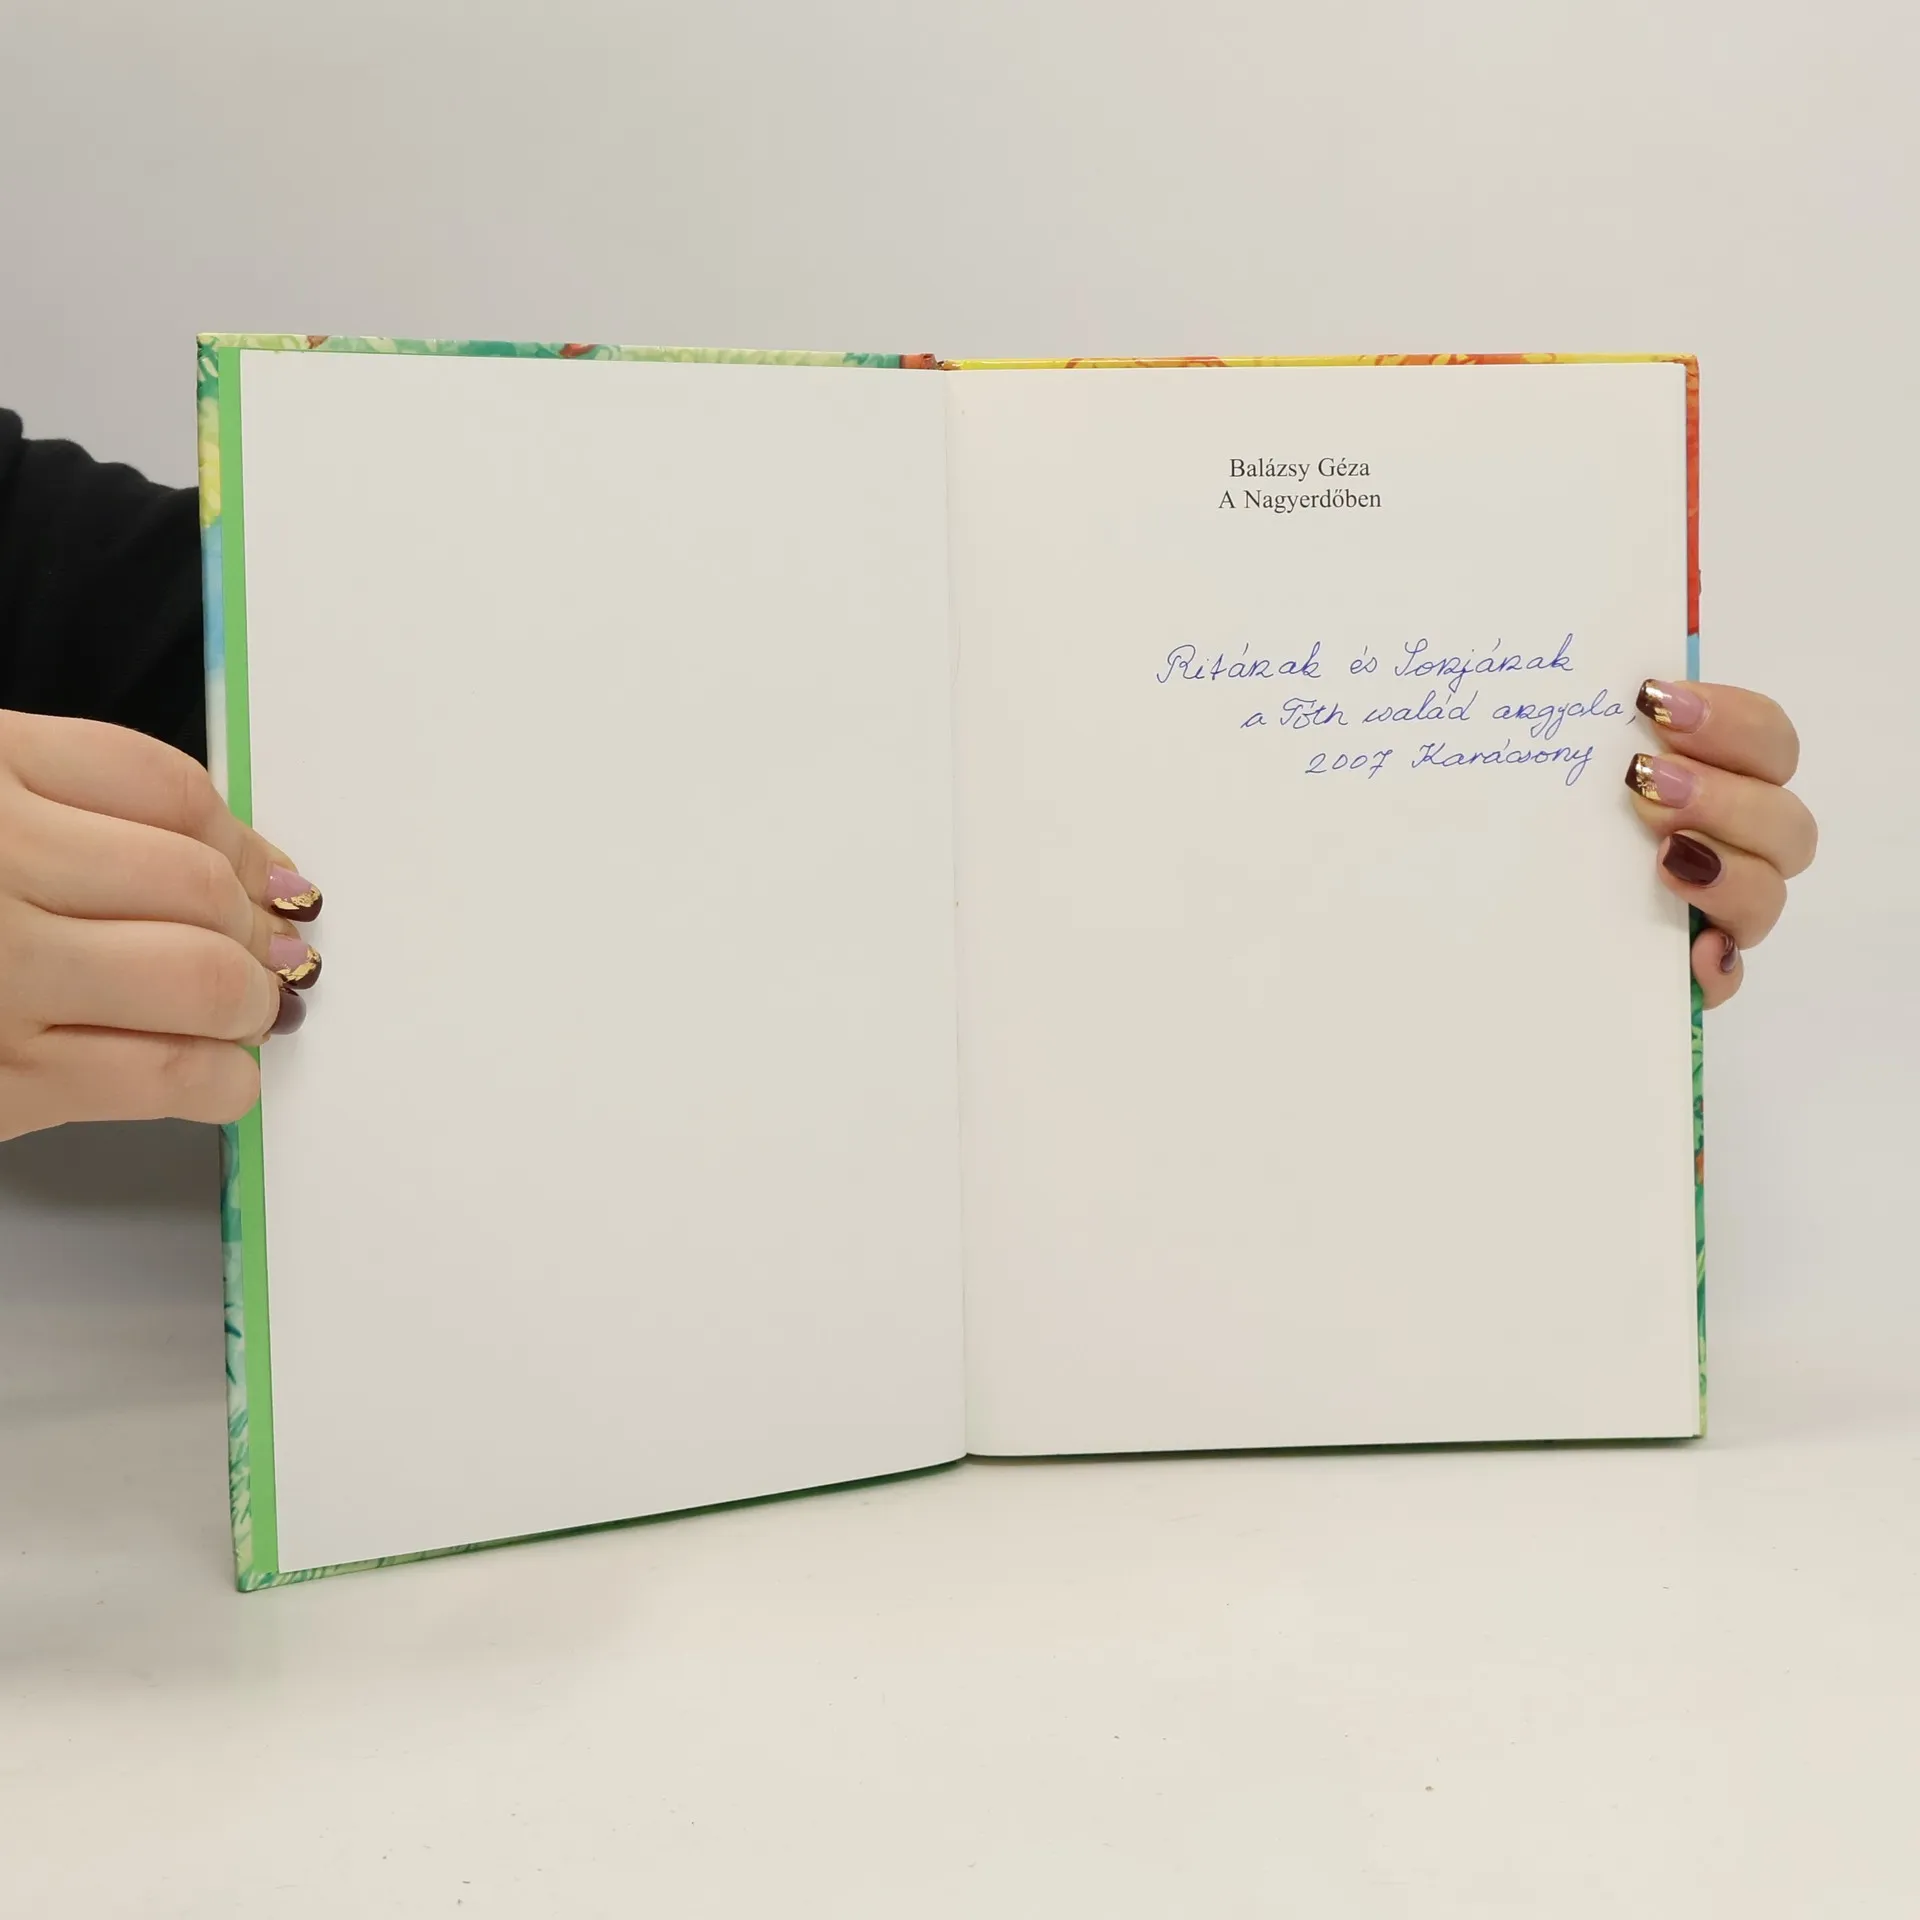 Balázsy Géza
A Nagyerdőben
Ritának és Sonjának
a Tóth család angyala,
2007 Karácsony